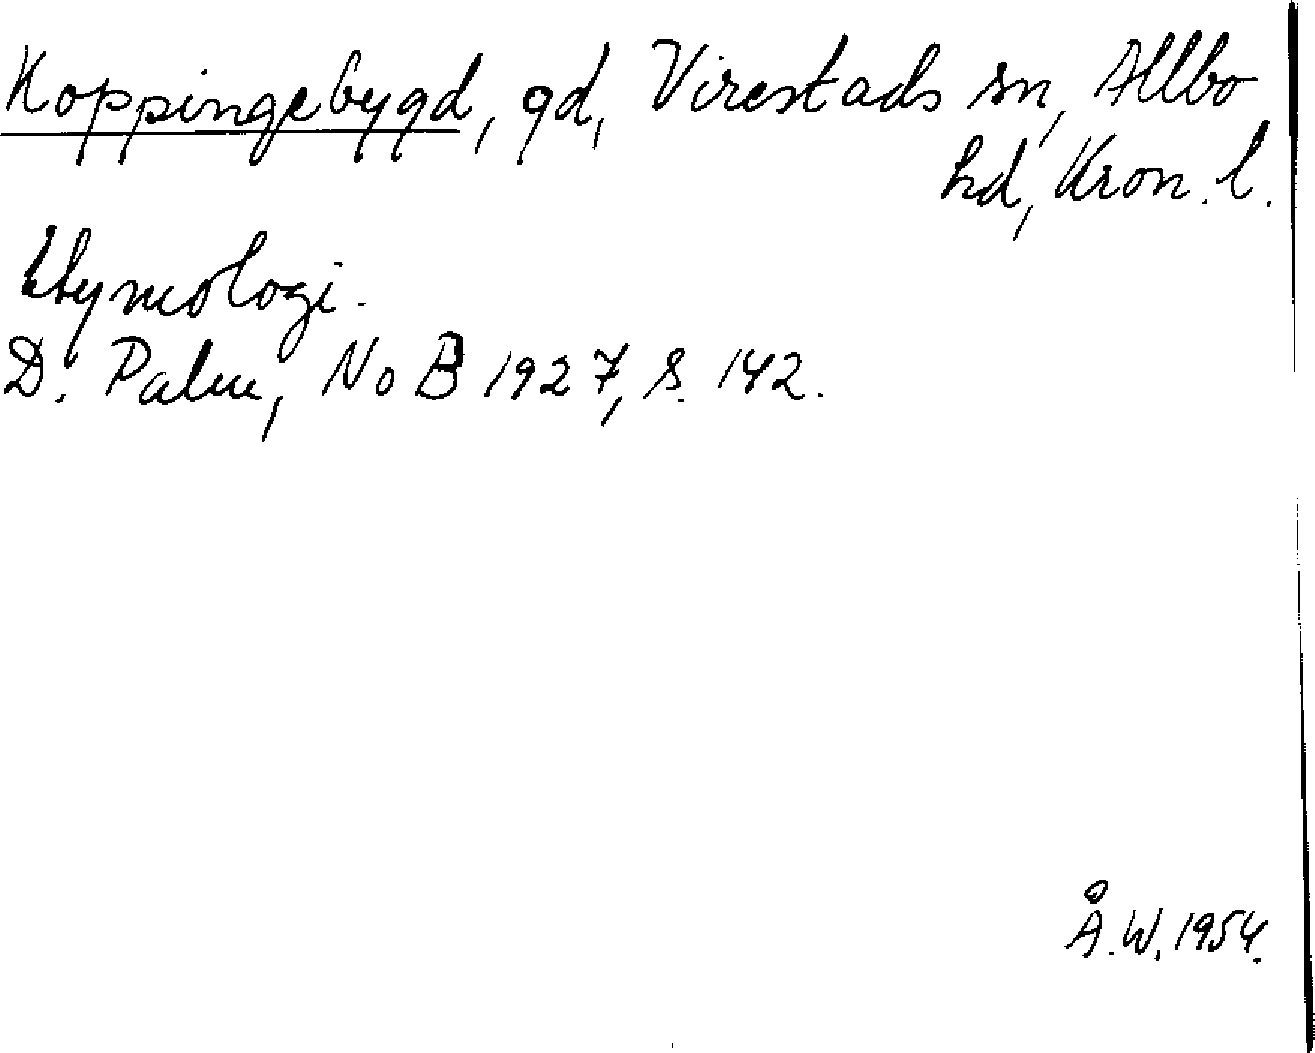 Koppingebygd, gd, Virestads sn, Allbo
hd, Kron. l.
Etymologi.
D. Palm, NoB 1927, s. 142.
Å.W. 1954.